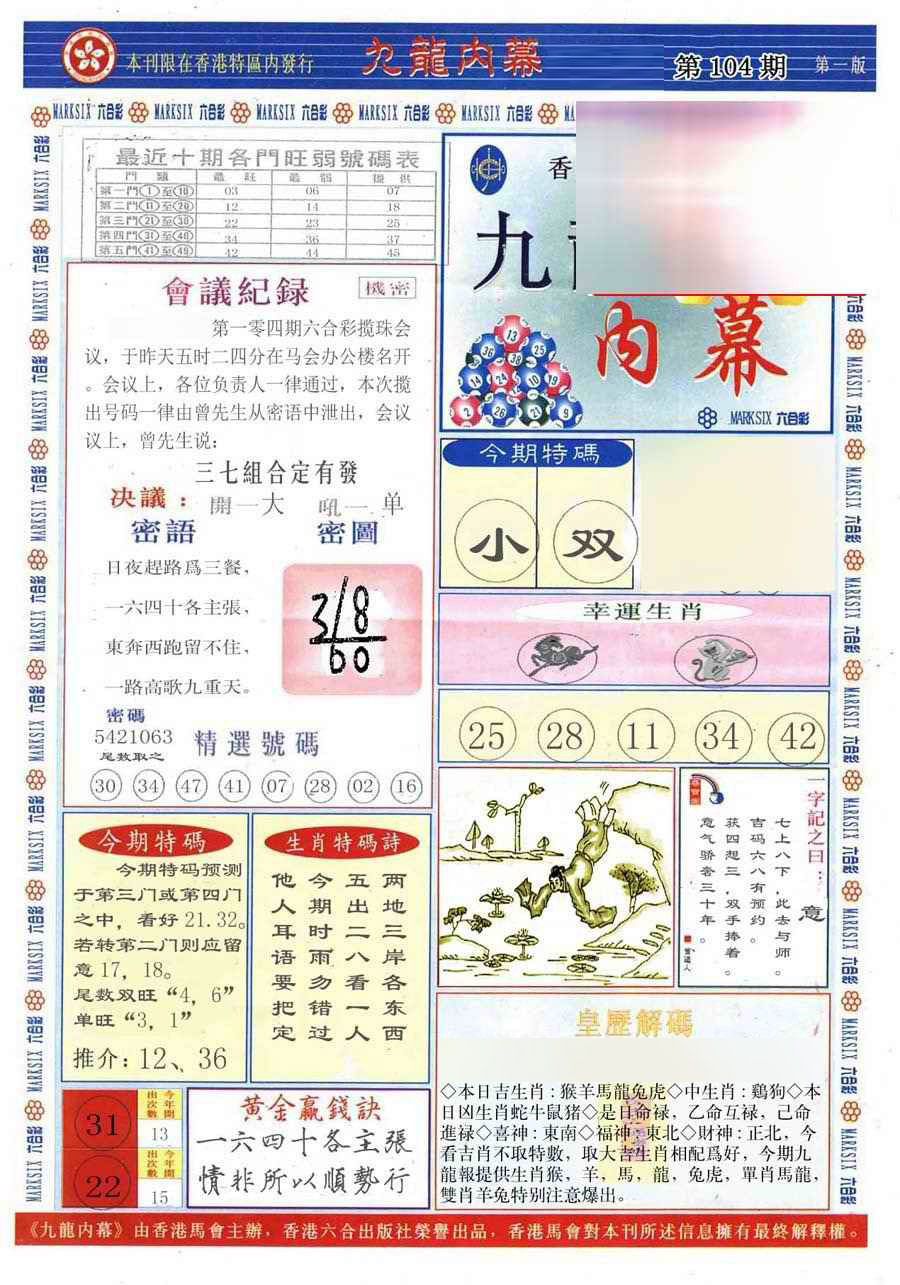 本刊限在香港特區内發行
九龍内幕
第 104 期
第一版
MARKSIX 六合彩 MARKSIX 六合彩 MARKSIX 六合彩 MARKSIX 六合彩 MARKSIX 六合彩
最近十期各門旺弱號碼表
門 類 最 旺 最 弱 提 供
第一門①至⑩ 03 06 07
第二門⑪至⑳ 12 14 18
第三門㉑至㉚ 22 23 25
第四門㉛至㊵ 34 36 37
第五門㊶至㊾ 42 44 45
香
九
内幕
MARKSIX 六合彩
會議紀録
機密
第一零四期六合彩揽珠会
议，于昨天五时二四分在马会办公楼名开
。会议上，各位负责人一律通过，本次揽
出号码一律由曾先生从密语中泄出，会议
议上，曾先生说：
三七組合定有發
决議：開一大 吼一单
密語
密圖
日夜趕路爲三餐，
一六四十各主張，
東奔西跑留不住，
一路高歌九重天。
3/8
60
密碼
5421063
尾数取之
精選號碼
30 34 47 41 07 28 02 16
今期特碼
小 双
幸運生肖
25 28 11 34 42
一字記之曰：意
七上八下，此去与师。
吉码六八有预约。
获四想三，双手捧着。
意气骄奢三十年。
今期特碼
今期特码预测
于第三门或第四门
之中，看好 21.32。
若转第二门则应留
意 17，18。
尾数双旺“4，6”
单旺“3，1”
推介：12、36
生肖特碼詩
两地三岸各东西
五出二八看一人
今期时雨勿错过
他人耳语要把定
皇歷解碼
◇本日吉生肖：猴羊馬龍兔虎◇中生肖：鷄狗◇本
日凶生肖蛇牛鼠猪◇是日命禄，乙命互禄，己命
進禄◇喜神：東南◇福神：東北◇財神：正北，今
看吉肖不取特數，取大吉生肖相配爲好，今期九
龍報提供生肖猴，羊，馬，龍，兔虎，單肖馬龍，
雙肖羊兔特别注意爆出。
31
今年開出次數
13
22
今年開出次數
15
黄金贏錢訣
一六四十各主張
情非所以順勢行
《九龍内幕》由香港馬會主辦，香港六合出版社榮譽出品，香港馬會對本刊所述信息擁有最終解釋權。